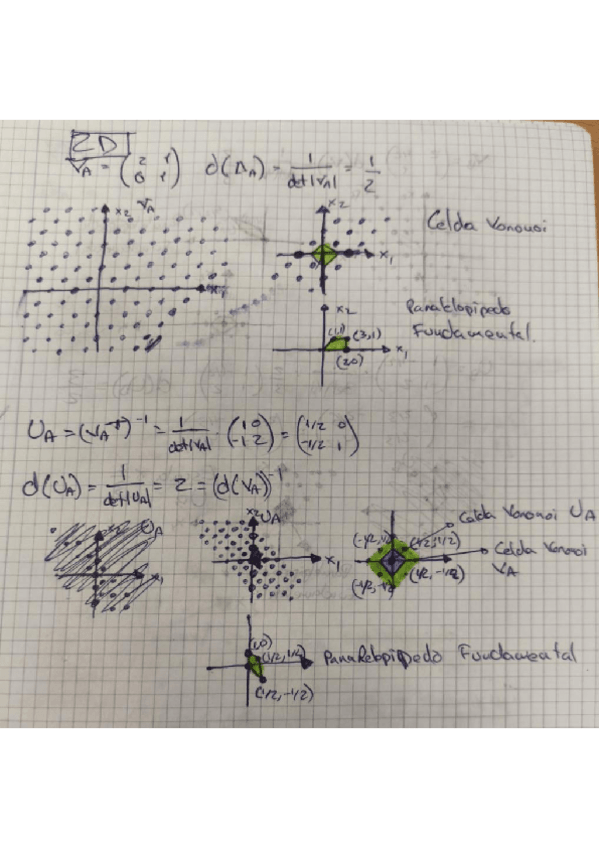 2D
V_A = (2 1 / 0 1) d(Λ_A) = 1/det|V_A| = 1/2
x2 V_A
x1
x2
x1
Celda Voronoi
x2
(1,1) (3,1)
x1
(2,0)
Paralelopipedo
Fundamental.
U_A = (V_A^T)^-1 = 1/det|V_A| · (1 0 / -1 2) = (1/2 0 / -1/2 1)
d(U_A) = 1/det|U_A| = 2 = (d(V_A))^-1
U_A
x2 U_A
x1
Celda Voronoi U_A
Celda Voronoi
V_A
(-1/2, 1/2) (1/2, 1/2)
(-1/2, -1/2) (1/2, -1/2)
(1,0)
(1/2, 1/2) Paralelopipedo Fundamental
(1/2, -1/2)